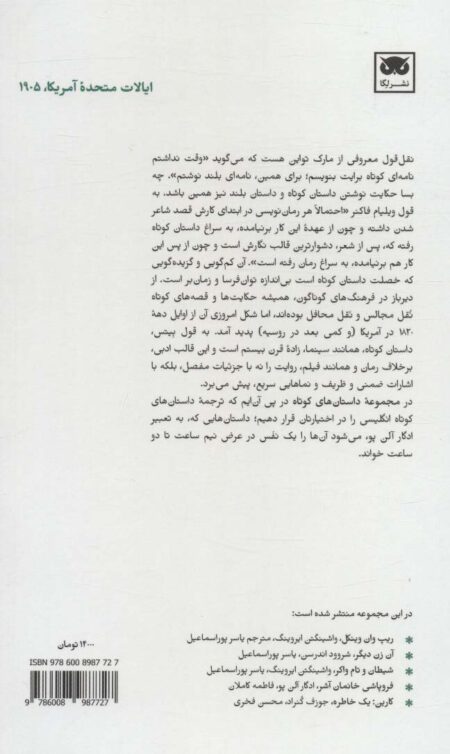 نشر لگا
ایالات متحدهٔ آمریکا، ۱۹۰۵
نقل‌قول معروفی از مارک تواین هست که می‌گوید «وقت نداشتم
نامه‌ای کوتاه برایت بنویسم؛ برای همین، نامه‌ای بلند نوشتم». چه
بسا حکایت نوشتن داستان کوتاه و داستان بلند نیز همین باشد. به
قول ویلیام فاکنر «احتمالاً هر رمان‌نویسی در ابتدای کارش قصد شاعر
شدن داشته و چون از عهدهٔ این کار برنیامده، به سراغ داستان کوتاه
رفته که، پس از شعر، دشوارترین قالب نگارش است و چون از پس این
کار هم برنیامده، به سراغ رمان رفته است». آن کم‌گویی و گزیده‌گویی
که خصلت داستان کوتاه است بی‌اندازه توان‌فرسا و زمان‌بر است. از
دیرباز در فرهنگ‌های گوناگون، همیشه حکایت‌ها و قصه‌های کوتاه
نُقل مجالس و نقل محافل بوده‌اند، اما شکل امروزی آن از اوایل دههٔ
۱۸۲۰ در آمریکا (و کمی بعد در روسیه) پدید آمد. به قول پیتس،
داستان کوتاه، همانند سینما، زادهٔ قرن بیستم است و این قالب ادبی،
برخلاف رمان و همانند فیلم، روایت را نه با جزئیات مفصل، بلکه با
اشارات ضمنی و ظریف و نماهایی سریع، پیش می‌برد.
در مجموعهٔ داستان‌های کوتاه در پی آن‌ایم که ترجمهٔ داستان‌های
کوتاه انگلیسی را در اختیارتان قرار دهیم؛ داستان‌هایی که، به تعبیر
ادگار آلن پو، می‌شود آن‌ها را یک نفس در عرض نیم ساعت تا دو
ساعت خواند.
در این مجموعه منتشر شده است:
* ریپ وان وینکل، واشینگتن ایروینگ، مترجم یاسر پوراسماعیل
* آن زن دیگر، شروود اندرسن، یاسر پوراسماعیل
* شیطان و تام واکر، واشینگتن ایروینگ، یاسر پوراسماعیل
* فروپاشی خاندان آشر، ادگار آلن پو، فاطمه کاملان
* کارین: یک خاطره، جوزف کُنراد، محسن فخری
۱۲۰۰۰ تومان
ISBN 978 600 8987 72 7
9 786008 987727